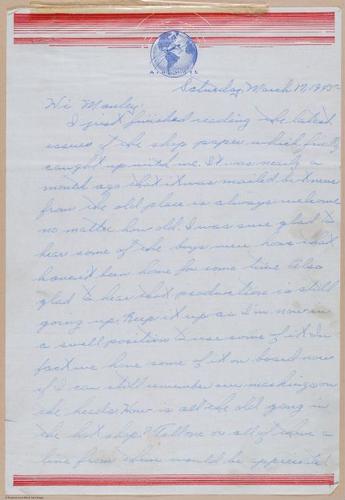 AIR MAIL
Saturday, March 17, 1945
Hi Manley!
I just finished reading the latest
issues of the shop paper which finally
caught up with me. It was nearly a
month ago that it was mailed but news
from the old place is always welcome
no matter how old. I was sure glad to
hear some of the boys were home that
haven't been home for some time. Also
glad to hear that production is still
going up. Keep it up as I'm now in
a swell position to use some of it. In
fact we have some of it on board now
if I can still remember our markings on
the heads. How is all the old gang in
the hot shop? Tell one or all of them a
line from them would be appreciated